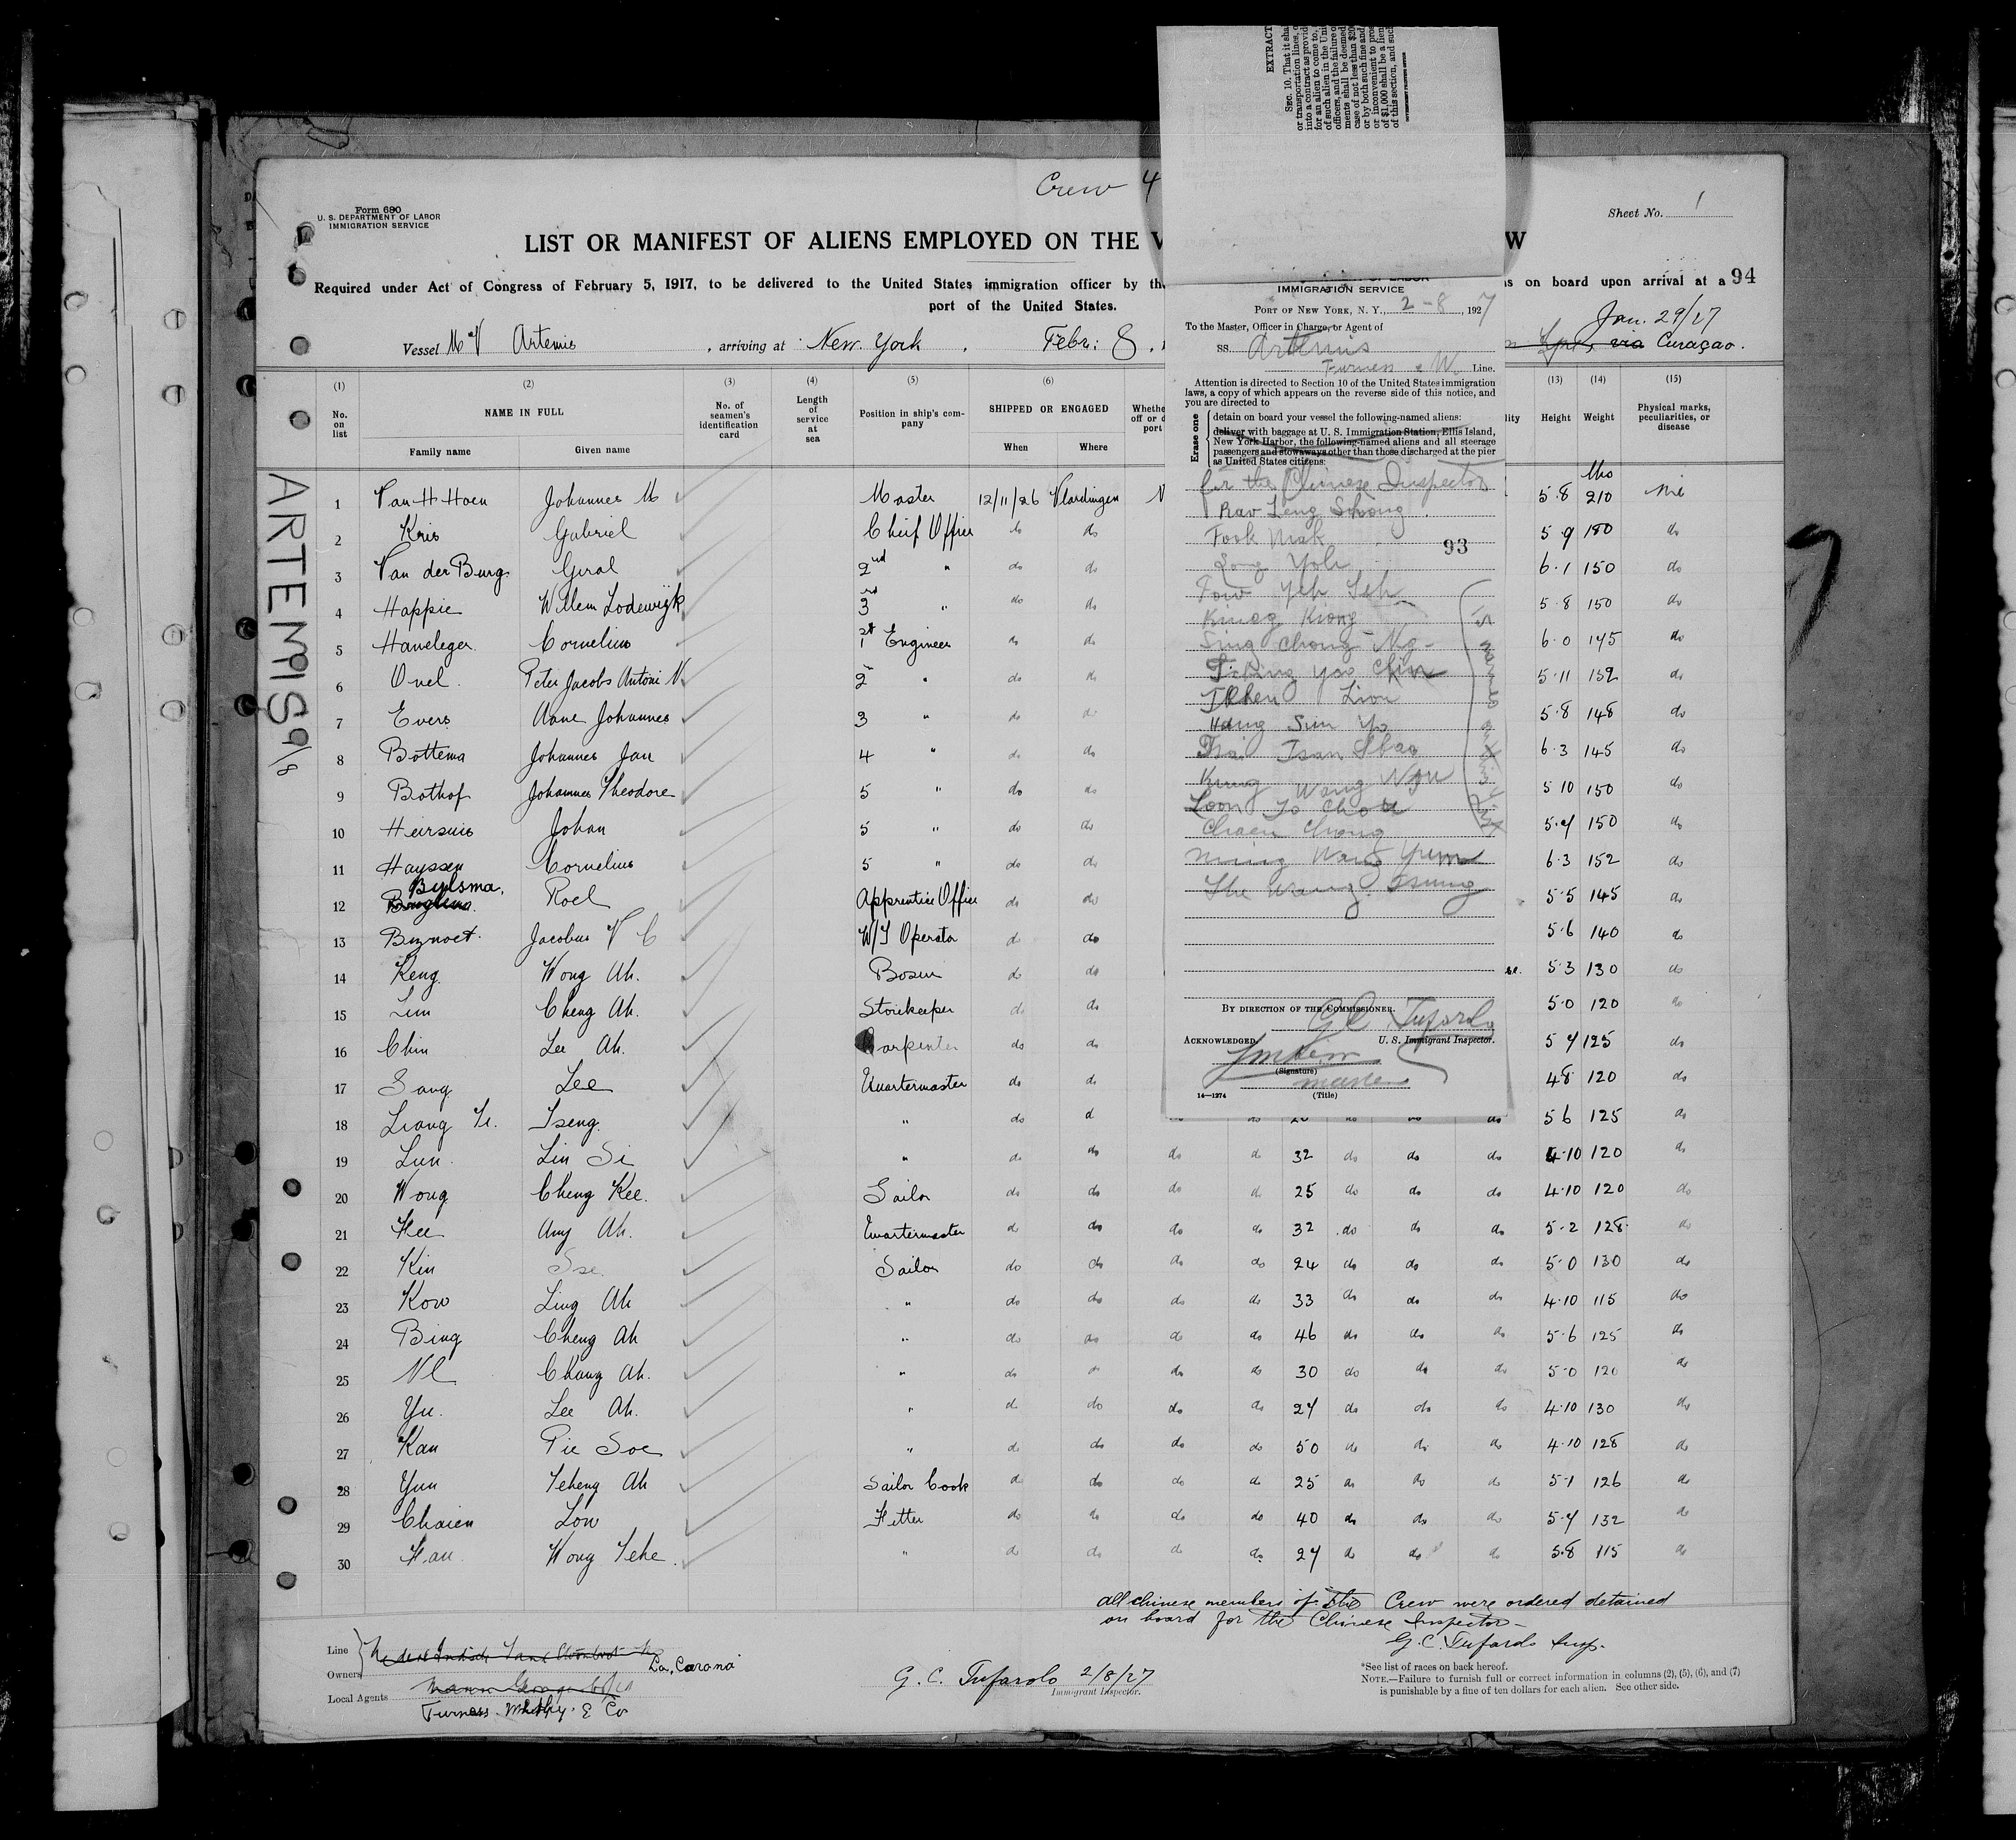 Crew 4
Form 680
U. S. DEPARTMENT OF LABOR
IMMIGRATION SERVICE
Sheet No. 1
LIST OR MANIFEST OF ALIENS EMPLOYED ON THE V
W
Required under Act of Congress of February 5, 1917, to be delivered to the United States immigration officer by the
s on board upon arrival at a 94
port of the United States.
Jan. 29/27
Vessel M V Artemis , arriving at New York , Febr: 8,
via Curaçao.
(1) (2) (3) (4) (5) (6) (13) (14) (15)
No. on list
NAME IN FULL
Family name Given name
No. of seamen's identification card
Length of service at sea
Position in ship's company
SHIPPED OR ENGAGED
When Where
Height Weight
Physical marks, peculiarities, or disease
ARTEMIS 9/8
1 Van H Hoen Johannes M Master 12/11/26 Vlardingen 5.8 210
2 Kris Gabriel Chief Officer do do 5 9 180 do
3 Van der Burg Geral 2nd " do do 6.1 150 do
4 Happie Willem Lodewijk 3rd " do do 5 8 150 do
5 Haneleger Cornelius 1st Engineer do do 6.0 145 do
6 Onel Peter Jacobs Antoni V 2 " do do 5.11 152 do
7 Evers Aane Johannes 3 " do do 5.8 148 do
8 Bottema Johannes Jan 4 " do do 6.3 145 do
9 Bothof Johannes Theodore 5 " do do 5 10 150 do
10 Heirsuis Johan 5 " do do 150 do
11 Hayssen Cornelius 5 " do do 6.3 152 do
12 Bylsma Roel Apprentice Officer do do 5.5 145 do
13 Jacobus V C W/T Operator do do 5.6 140 do
14 Keng Wong Ah. Bosun do do 5.3 130 do
15 Cheng Ah. Storekeeper do do 5.0 120 do
16 Chin Lee Ah. Carpenter do do 125 do
17 Sang Lee Quartermaster do do 48 120 do
18 Liang Tseng " do d 5 6 125 do
19 Lun Lin Si " do do do do 32 do do do 4.10 120 do
20 Wong Cheng Kee. Sailor do do do do 25 do do do 4.10 120 do
21 Hee Amy Ah. Quartermaster do do do do 32 do do do 5.2 128 do
22 Kin Sailor do do do do 24 do do do 5.0 130 do
23 Kow Ling Ah " do do do do 33 do do do 4.10 115 do
24 Bing Cheng Ah " do do do do 46 do do do 5.6 125 do
25 Chang Ah. " do do do do 30 do do do 5.0 120 do
26 Yu. Lee Ah. " do do do do 27 do do do 4.10 130 do
27 Kan Pie Soe " do do do do 50 do do do 4.10 128 do
28 Yun Teheng Ah Sailor Cook do do do do 25 do do do 5.1 126 do
29 Chaien Low Fitter do do do do 40 do do do 132 do
30 Wong Tehe " do do do do 27 do do do 5.8 115 do
all chinese members of the Crew were ordered detained
on board for the Chinese Inspector
G. C. Tufarolo Insp.
Line
Owners
La Corona
Local Agents
Furness Withy & Co
G. C. Tufarolo 2/8/27
Immigrant Inspector.
*See list of races on back hereof.
NOTE.—Failure to furnish full or correct information in columns (2), (5), (6), and (7)
is punishable by a fine of ten dollars for each alien. See other side.
EXTRACT
SEC. 10. That it sha
or transportation lines, o
into a contract as provid
for an alien to come to,
of such alien in the Uni
officers, and the failure o
ments shall be deemed
case of not less than $20
or by both such fine and
or inconvenient to pros
of $1,000 shall be a lien
of this section, and such
IMMIGRATION SERVICE
PORT OF NEW YORK, N. Y., 2-8, 1927
To the Master, Officer in Charge, or Agent of
SS. Artemis
Furness W. Line.
Attention is directed to Section 10 of the United States immigration
laws, a copy of which appears on the reverse side of this notice, and
you are directed to
Erase one
detain on board your vessel the following-named aliens:
deliver with baggage at U. S. Immigration Station, Ellis Island,
New York Harbor, the following-named aliens and all steerage
passengers and stowaways other than those discharged at the pier
as United States citizens:
for the Chinese Inspector
Leng
Fook Mak
93
Yoh
Yeh Seh
Kiong
Sing Chong Ng
Yoo Chin
Lion
Sun Yo
Tsan
Wang
Loon Yo Chou
Chaen Chong
Ming Wang Yum
She Wang Tsung
BY DIRECTION OF THE COMMISSIONER.
G C Tufarolo
ACKNOWLEDGED
U. S. Immigrant Inspector.
(Signature)
master
(Title)
14—1274